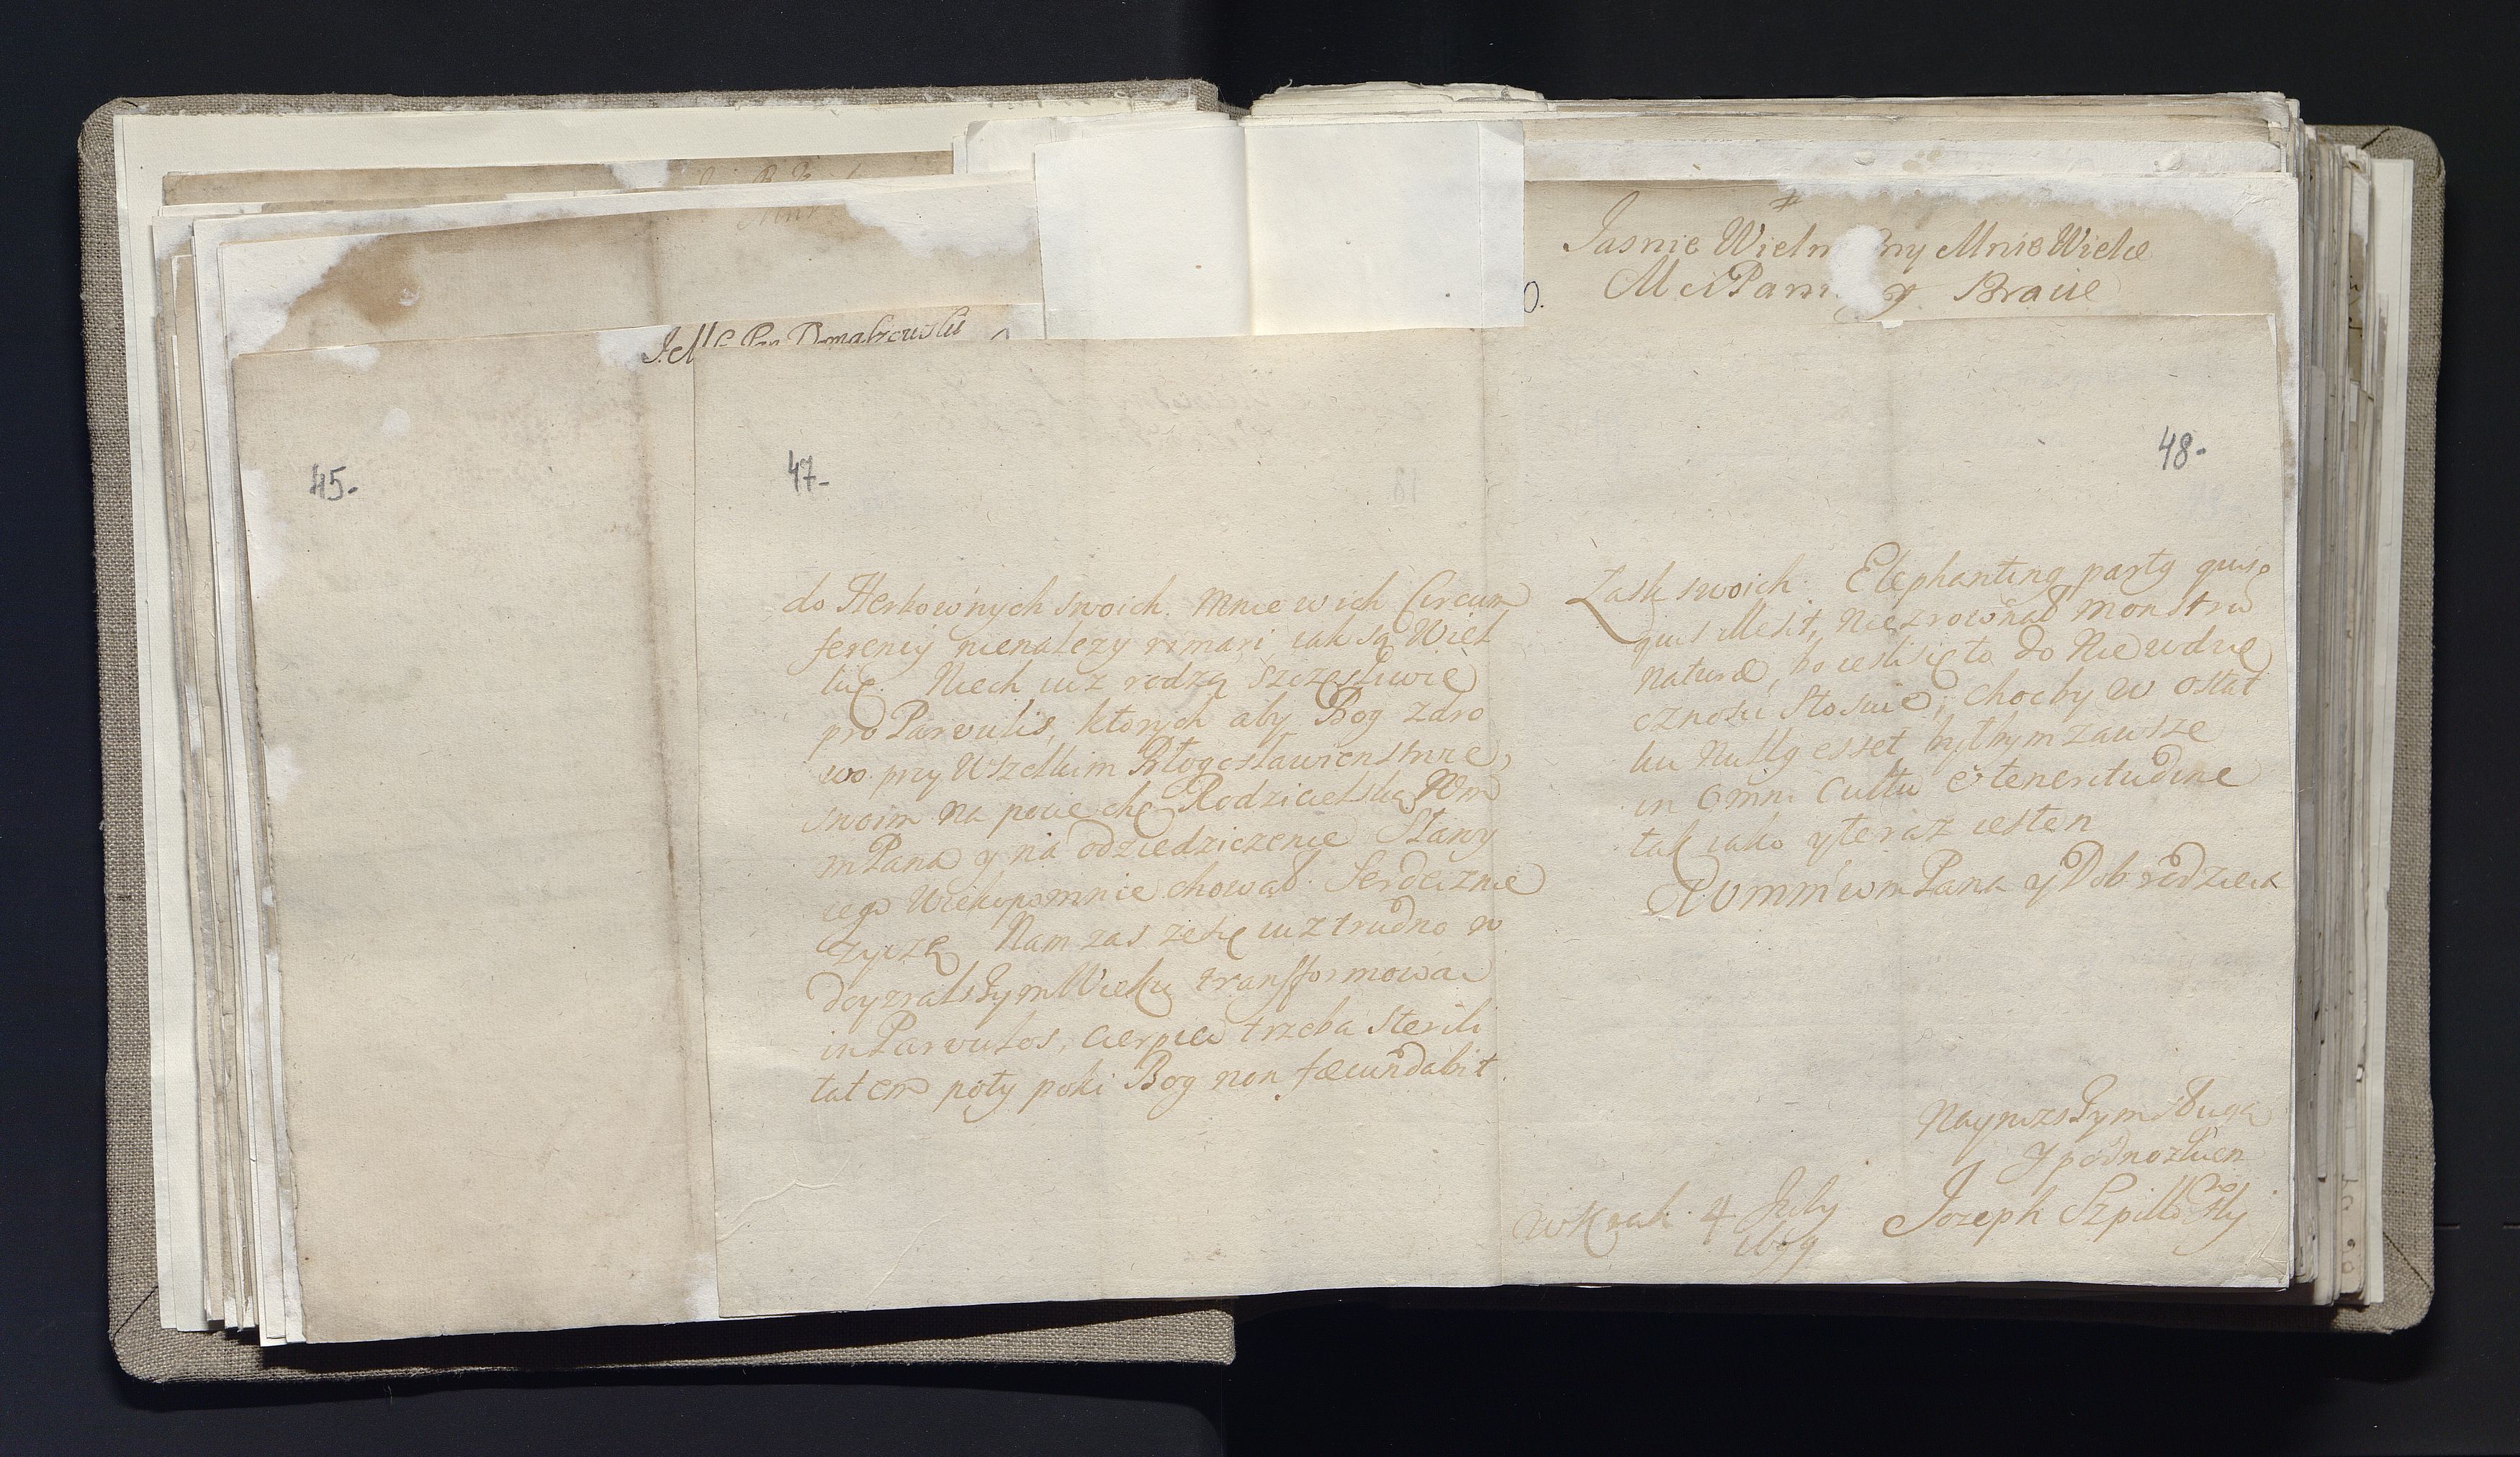 Jasnie Wielm ny Mnie Wielce
M ci Pani y Bracie
J. M
45.
47.
do Herkownych swoich. Mnie w ich Circum
ferency nienalezy rimari, iak są Wiel
kie. Niech iuz rodzą szczęsliwie
pro Parvulis, ktorych aby Bog zdro
wo przy Wszelkim Błogosławienstwie
swoim na pociechę Rodzicielską Wm
mPana y na odziedziczenie Sławy
iego Wiekopomnie chował. Serdecznie
zyczę. Nam zas ze się iuz trudno w
doyzralszym Wieku transformowac
in Parvulos, cierpiec trzeba sterili
tatem poty poki Bog non fæcundabit.
48.
Łask swoich. Elephantinq partq
quis Mesit, niezrownał monstru
naturæ, bo iesli się to do Niewdzię
cznosci stosuie, chocby w ostat
ku nullq esset byłbym zawsze
in omni Cultu & teneritudine
tak iako y teraz iestem
WMM wm Pana y Dobrodzieia
Naynizszym sługą
y podnozkiem
w Krak. 4 July Jozeph
1699